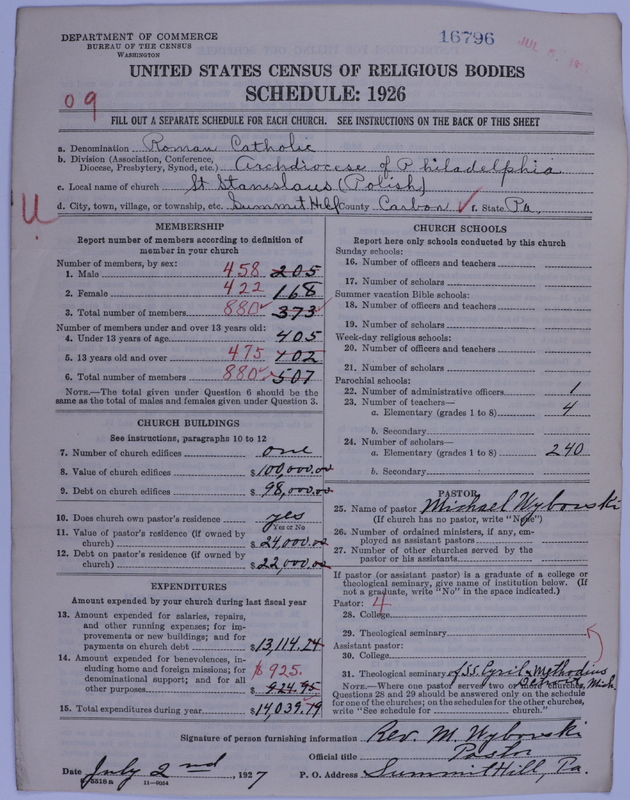 DEPARTMENT OF COMMERCE
BUREAU OF THE CENSUS
WASHINGTON
16796
UNITED STATES CENSUS OF RELIGIOUS BODIES
SCHEDULE: 1926
09
FILL OUT A SEPARATE SCHEDULE FOR EACH CHURCH. SEE INSTRUCTIONS ON THE BACK OF THIS SHEET
a. Denomination Roman Catholic
b. Division (Association, Conference, Diocese, Presbytery, Synod, etc.) Archdiocese of Philadelphia
c. Local name of church St Stanislaus (Polish)
d. City, town, village, or township, etc. Summit Hill County Carbon f. State Pa.
U.
MEMBERSHIP
Report number of members according to definition of
member in your church
Number of members, by sex:
1. Male 458 205
2. Female 422 168
3. Total number of members 880 373
Number of members under and over 13 years old:
4. Under 13 years of age 405
5. 13 years old and over 475 102
6. Total number of members 880 507
NOTE.—The total given under Question 6 should be
same as the total of males and females given under Question 3.
CHURCH BUILDINGS
See instructions, paragraphs 10 to 12
7. Number of church edifices one
8. Value of church edifices $100,000.00
9. Debt on church edifices $98,000.00
10. Does church own pastor's residence yes
Yes or No
11. Value of pastor's residence (if owned by
church) $24,000.00
12. Debt on pastor's residence (if owned by
church) $22,000.00
EXPENDITURES
Amount expended by your church during last fiscal year
13. Amount expended for salaries, repairs,
and other running expenses; for im-
provements or new buildings; and for
payments on church debt $13,114.24
14. Amount expended for benevolences, in-
cluding home and foreign missions; for
denominational support; and for all
other purposes $925. $924.95
15. Total expenditures during year $14,039.19
CHURCH SCHOOLS
Report here only schools conducted by this church
Sunday schools:
16. Number of officers and teachers
17. Number of scholars
Summer vacation Bible schools:
18. Number of officers and teachers
19. Number of scholars
Week-day religious schools:
20. Number of officers and teachers
21. Number of scholars
Parochial schools:
22. Number of administrative officers 1
23. Number of teachers—
a. Elementary (grades 1 to 8) 4
b. Secondary
24. Number of scholars—
a. Elementary (grades 1 to 8) 240
b. Secondary
PASTOR
25. Name of pastor Michael Wybowski
(If church has no pastor, write "None")
26. Number of ordained ministers, if any, em-
ployed as assistant pastors
27. Number of other churches served by the
pastor or his assistants
If pastor (or assistant pastor) is a graduate of a college or
theological seminary, give name of institution below. (If
not a graduate, write "No" in the space indicated.)
Pastor: 4
28. College
29. Theological seminary
Assistant pastor:
30. College
31. Theological seminary of S.S. Cyril & Methodius
Detroit, Mich.
NOTE.—Where one pastor served two or more churches,
Questions 28 and 29 should be answered only on the schedule
for one of the churches; on the schedules for the other churches,
write "See schedule for church."
Signature of person furnishing information Rev. M. Wybowski
Official title Pastor
Date July 2nd, 1927 P. O. Address Summit Hill, Pa.